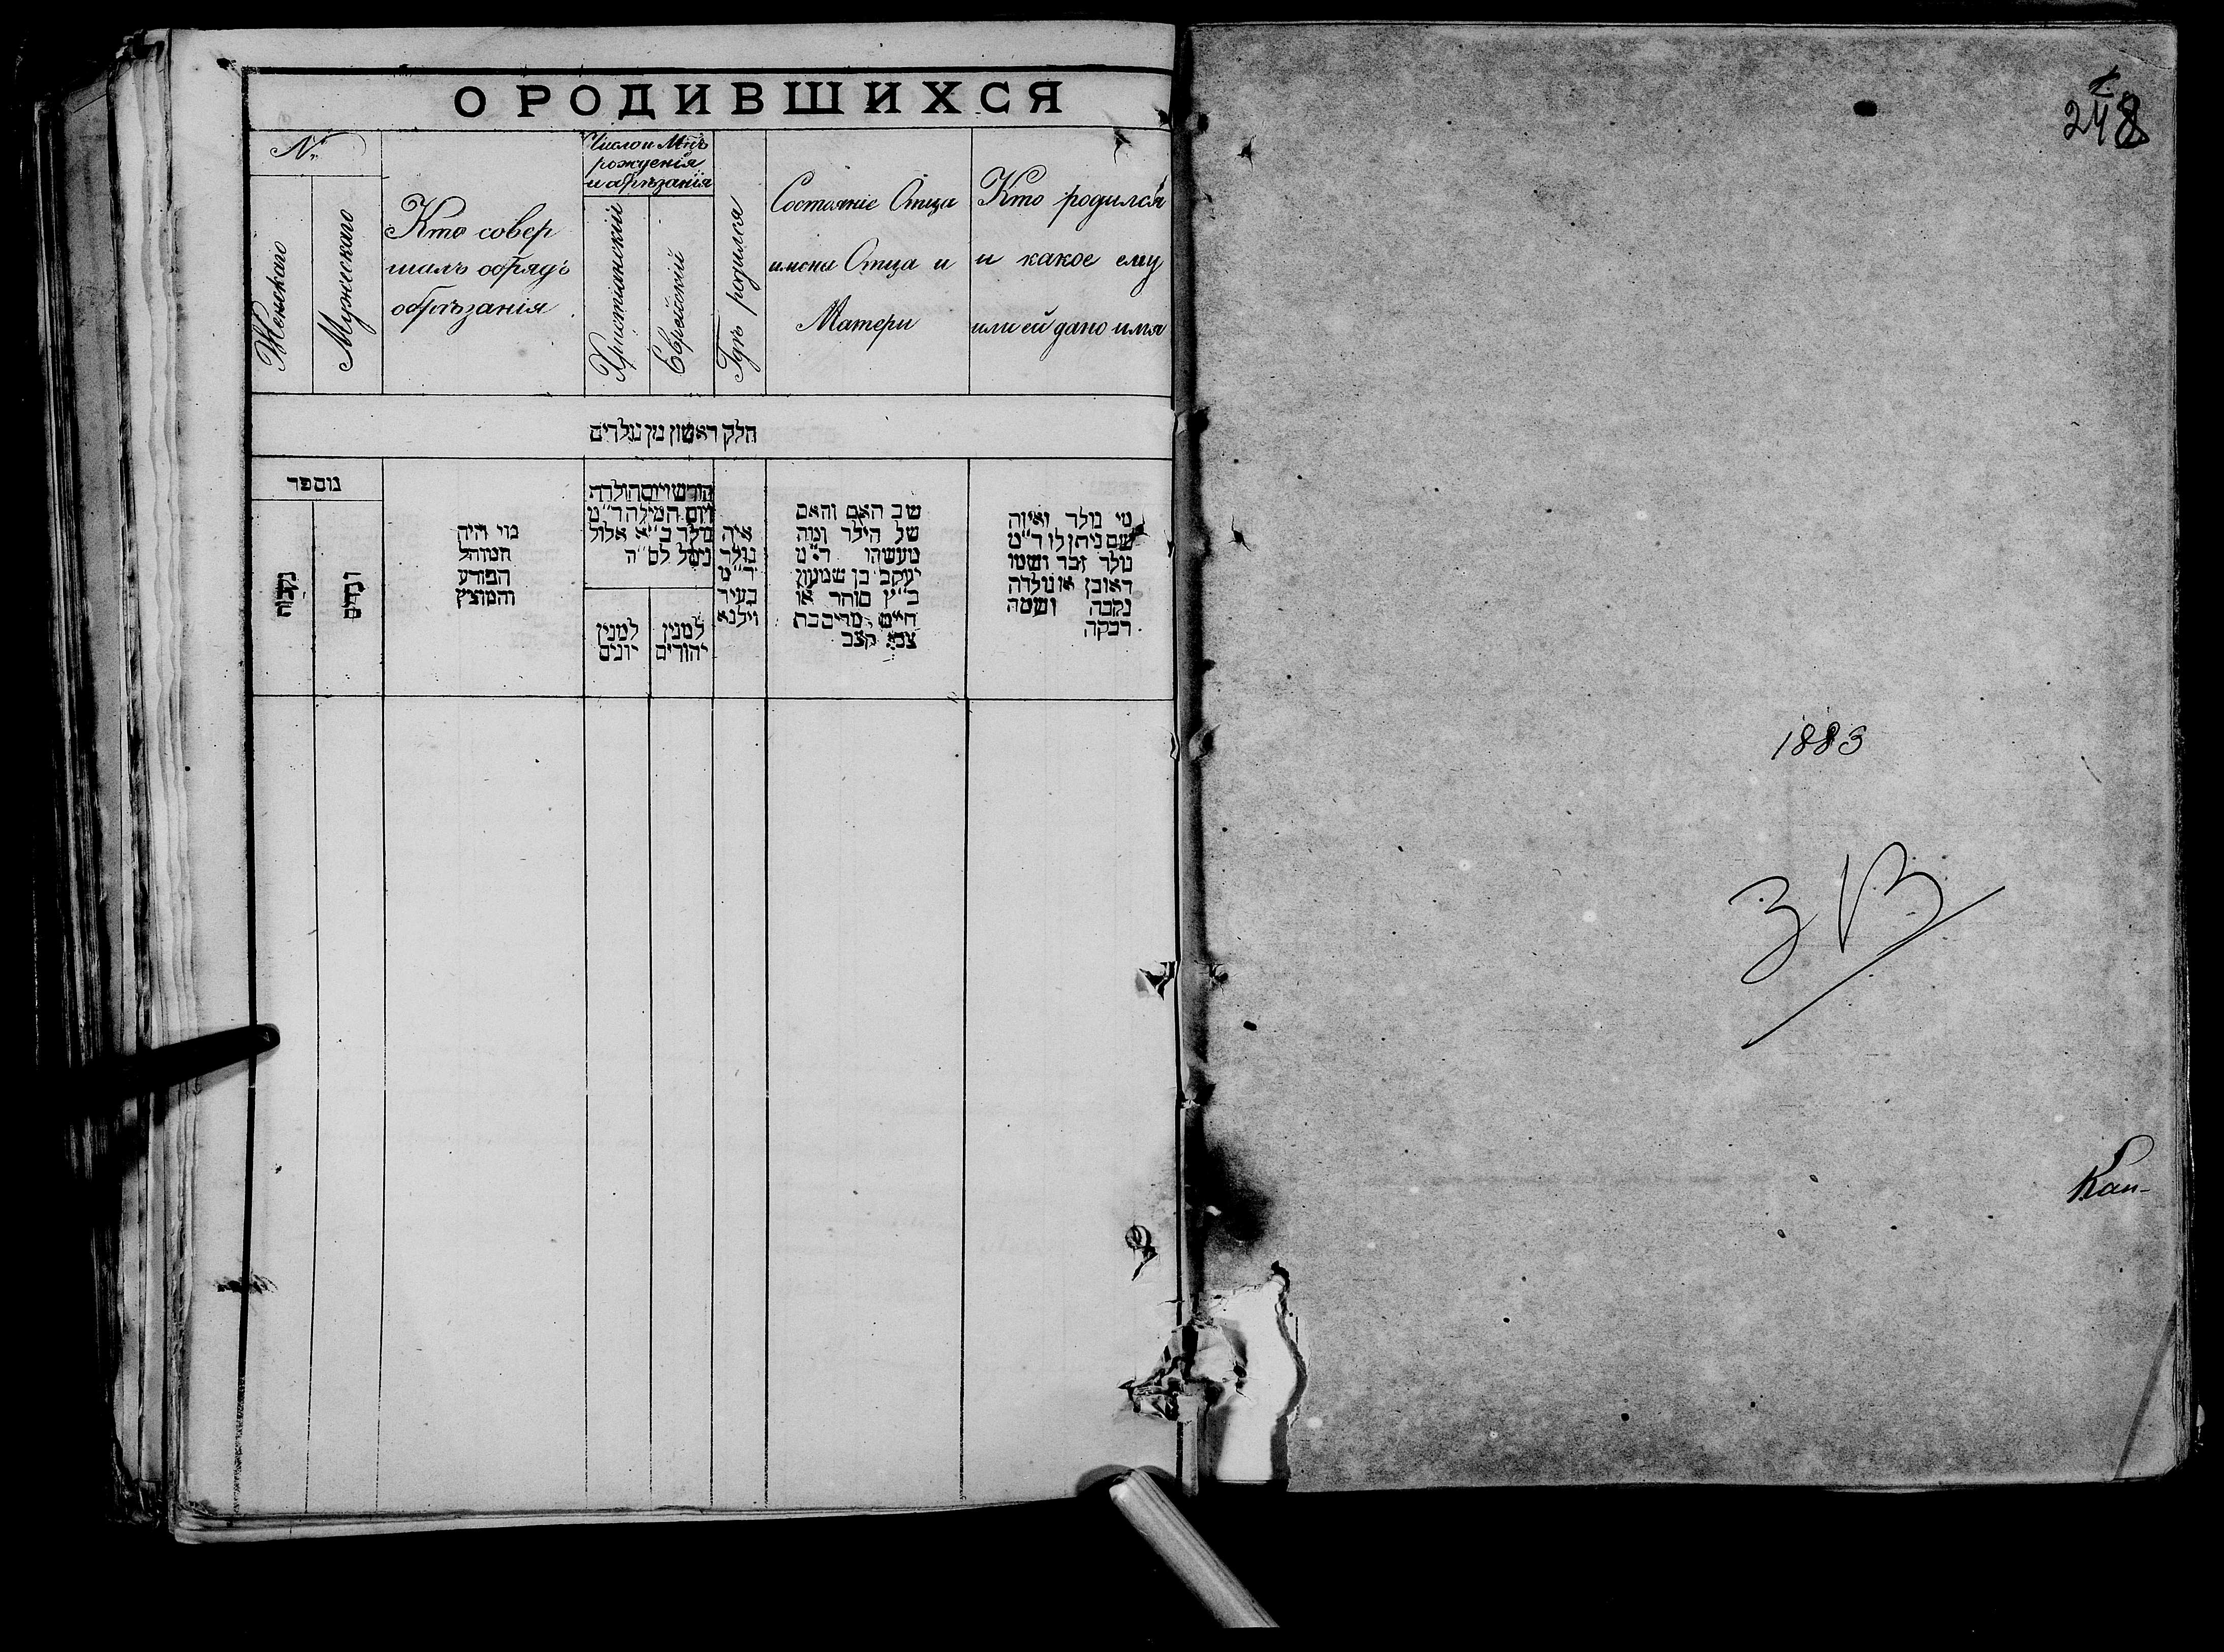 О РОДИВШИХСЯ
№
Женскаго
Мужескаго
Кто совер
шалъ обрядъ
обрѣзанія
Число и Мѣсъ
рожденія
и обрѣзанія
Христіанскій
Еврейскій
Гдѣ родился
Состояніе Отца
имена Отца и
Матери
Кто родился
и какое ему
или ей дано имя
חלק ראשון מן נולדים
מוספר
נקבות
זכרים
מי היה
המוהל
הפורע
והמוצץ
חודש ויום הולדה
ויום המילה ד״מ
נולד ב״א אלול
נימל לס״ה
למנין
יונים
למנין
יהודים
איה
נולד
ד״מ
בעיר
וילנא
שם האב והאם
של הילד ומה
מעשהו ד״מ
יעקב בן שמעון
כ״ץ סוחר או
חיים מרים בת
צבי קצב
מי נולד ואיזה
שם ניתן לו ד״מ
נולד זכר ושמו
ראובן או נולדה
נקבה ושמה
רבקה
248
1883
Кан-